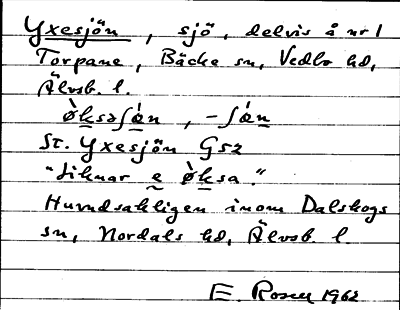 Yxesjön, sjö, delvis å nr 1
Torpane, Bäcke sn, Vedbo hd,
Älvsb. l.
ø̀ksəʃǿn, -ʃǿn
St. Yxesjön G52
"Liknar e ø̀ksa."
Huvudsakligen inom Dalskogs
sn, Nordals hd, Älvsb. l.
E. Rosell 1962